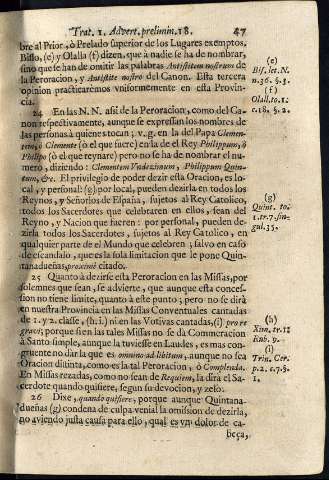 Trat. 1. Advert. prelimin. 18. 47
bre al Prior, ò Prelado Superior de los Lugares exemptos,
Bisso, (e) y Olalla (f) dizen, que à nadie se ha de nombrar,
sino que se han de omitir las palabras Antistitem nostrum de
la Peroracion, y Antistite nostro del Canon. Esta tercera
opinion practicarèmos vniformemente en esta Provin-
cia.
24 En las N.N. assi de la Peroracion, como del Ca-
non respectivamente, aunque se expressan los nombres de
las personas à quienes tocan; v.g. en la del Papa Clemen-
tem, ò Clemente (ò el que fuere) en la de el Rey Philippum, ò
Philipo (ò el que reynare) pero no se ha de nombrar el nu-
mero, diziendo: Clementem Vndezimum, Philippum Quin-
tum, &c. El privilegio de poder dezir esta Oracion, es lo-
cal, y personal: (g) por local, pueden dezirla en todos los
Reynos, y Señorios de España, sujetos al Rey Catolico,
todos los Sacerdotes que celebraren en ellos, sean del
Reyno, y Nacion que fueren: por personal, pueden de-
zirla todos los Sacerdotes, sujetos al Rey Catolico, en
qualquier parte de el Mundo que celebren; salvo en caso
de escandalo, que es la sola limitacion que le pone Quin-
tanadueñas, proximè citado.
25 Quanto à dezirse esta Peroracion en las Missas, por
solemnes que sean, se advierte, que aunque esta conces-
sion no tiene limite, quanto à este punto; pero no se dirà
en nuestra Provincia en las Missas Conventuales cantadas
de 1. y 2. classe, (h. i.) ni en las Votivas cantadas, (i) pro re
gravi; porque si en las tales Missas no se dà Commeracion
à Santo simple, aunque la tuviesse en Laudes, es mas con-
gruente no dar la que es omnino ad libitum, aunque no sea
Oracion distinta, como es la tal Peroracion, ò Complenda.
En Missas rezadas, como no sean de Requiem, la dirà el Sa-
cerdote quando quisiere, segun su devocion, y zelo.
26 Dixe, quando quisiere, porque aunque Quintana-
dueñas (g) condena de culpa venial la omission de dezirla,
no aviendo justa causa para ello, qual es vn dolor de ca-
beça,
(e)
Bis. let. N.
n. 36. §. 3.
(f)
Olall. to. 1.
c. 18. §. 2.
(g)
Quint. to.
1. tr. 7. sin-
gul. 35.
(h)
Xim. tr. 12
Rub. 9.
(i)
Trin. Cer.
p. 2. c. 7. §.
1.